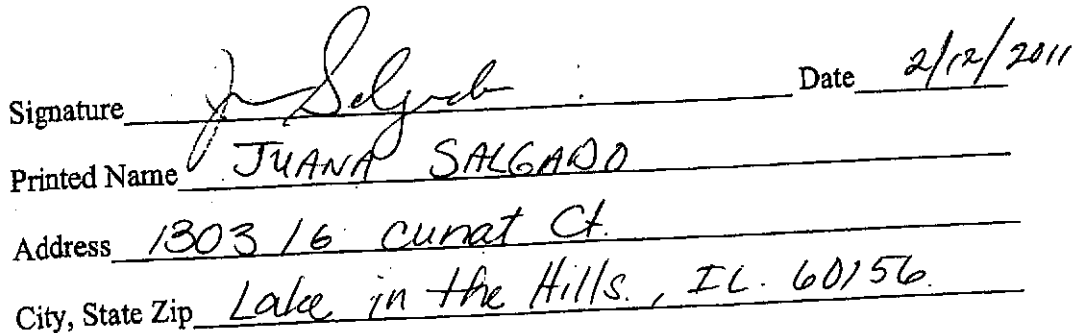 Signature Juana Salgado Date 2/12/2011
Printed Name JUANA SALGADO
Address 1303 16 Cunat Ct.
City, State Zip Lake in the Hills., IL. 60156.